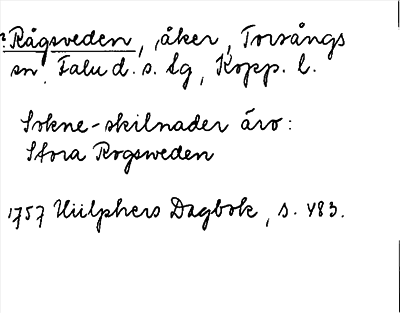 ? Rågsveden, åker, Torsångs
sn, Falu d. s. lg, Kopp. l.
Sokne-skilnader äro:
Stora Rogsweden
1757 Hülphers Dagbok, s. 483.